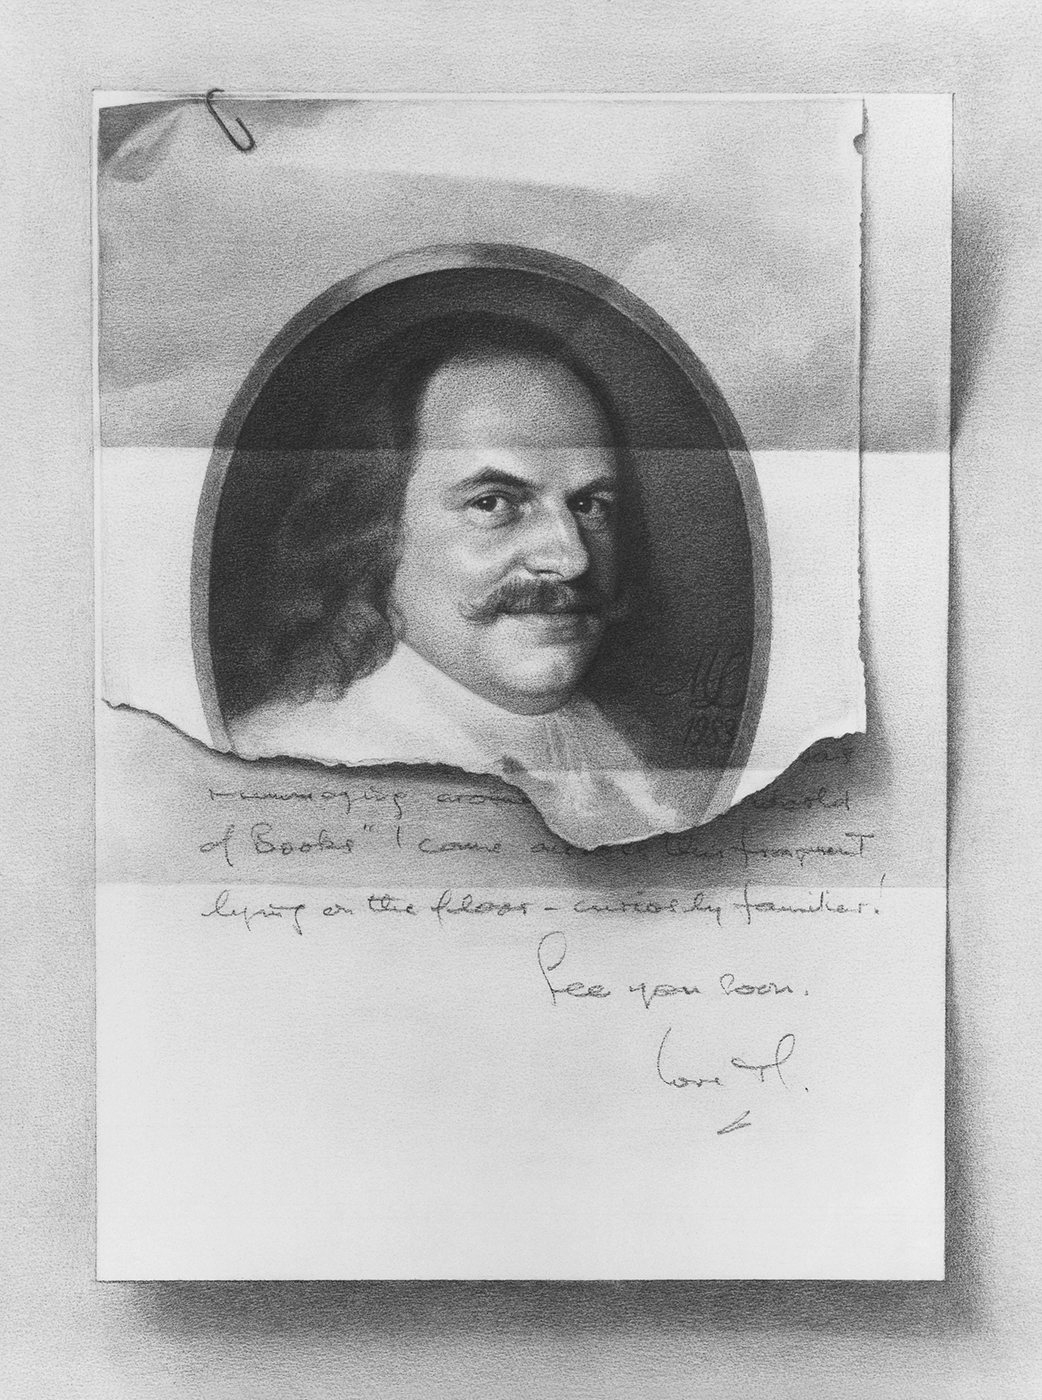 1983
rummaging around World
of Books" I came across this fragment
lying on the floor – curiosly familiar!
See you soon.
Love M.